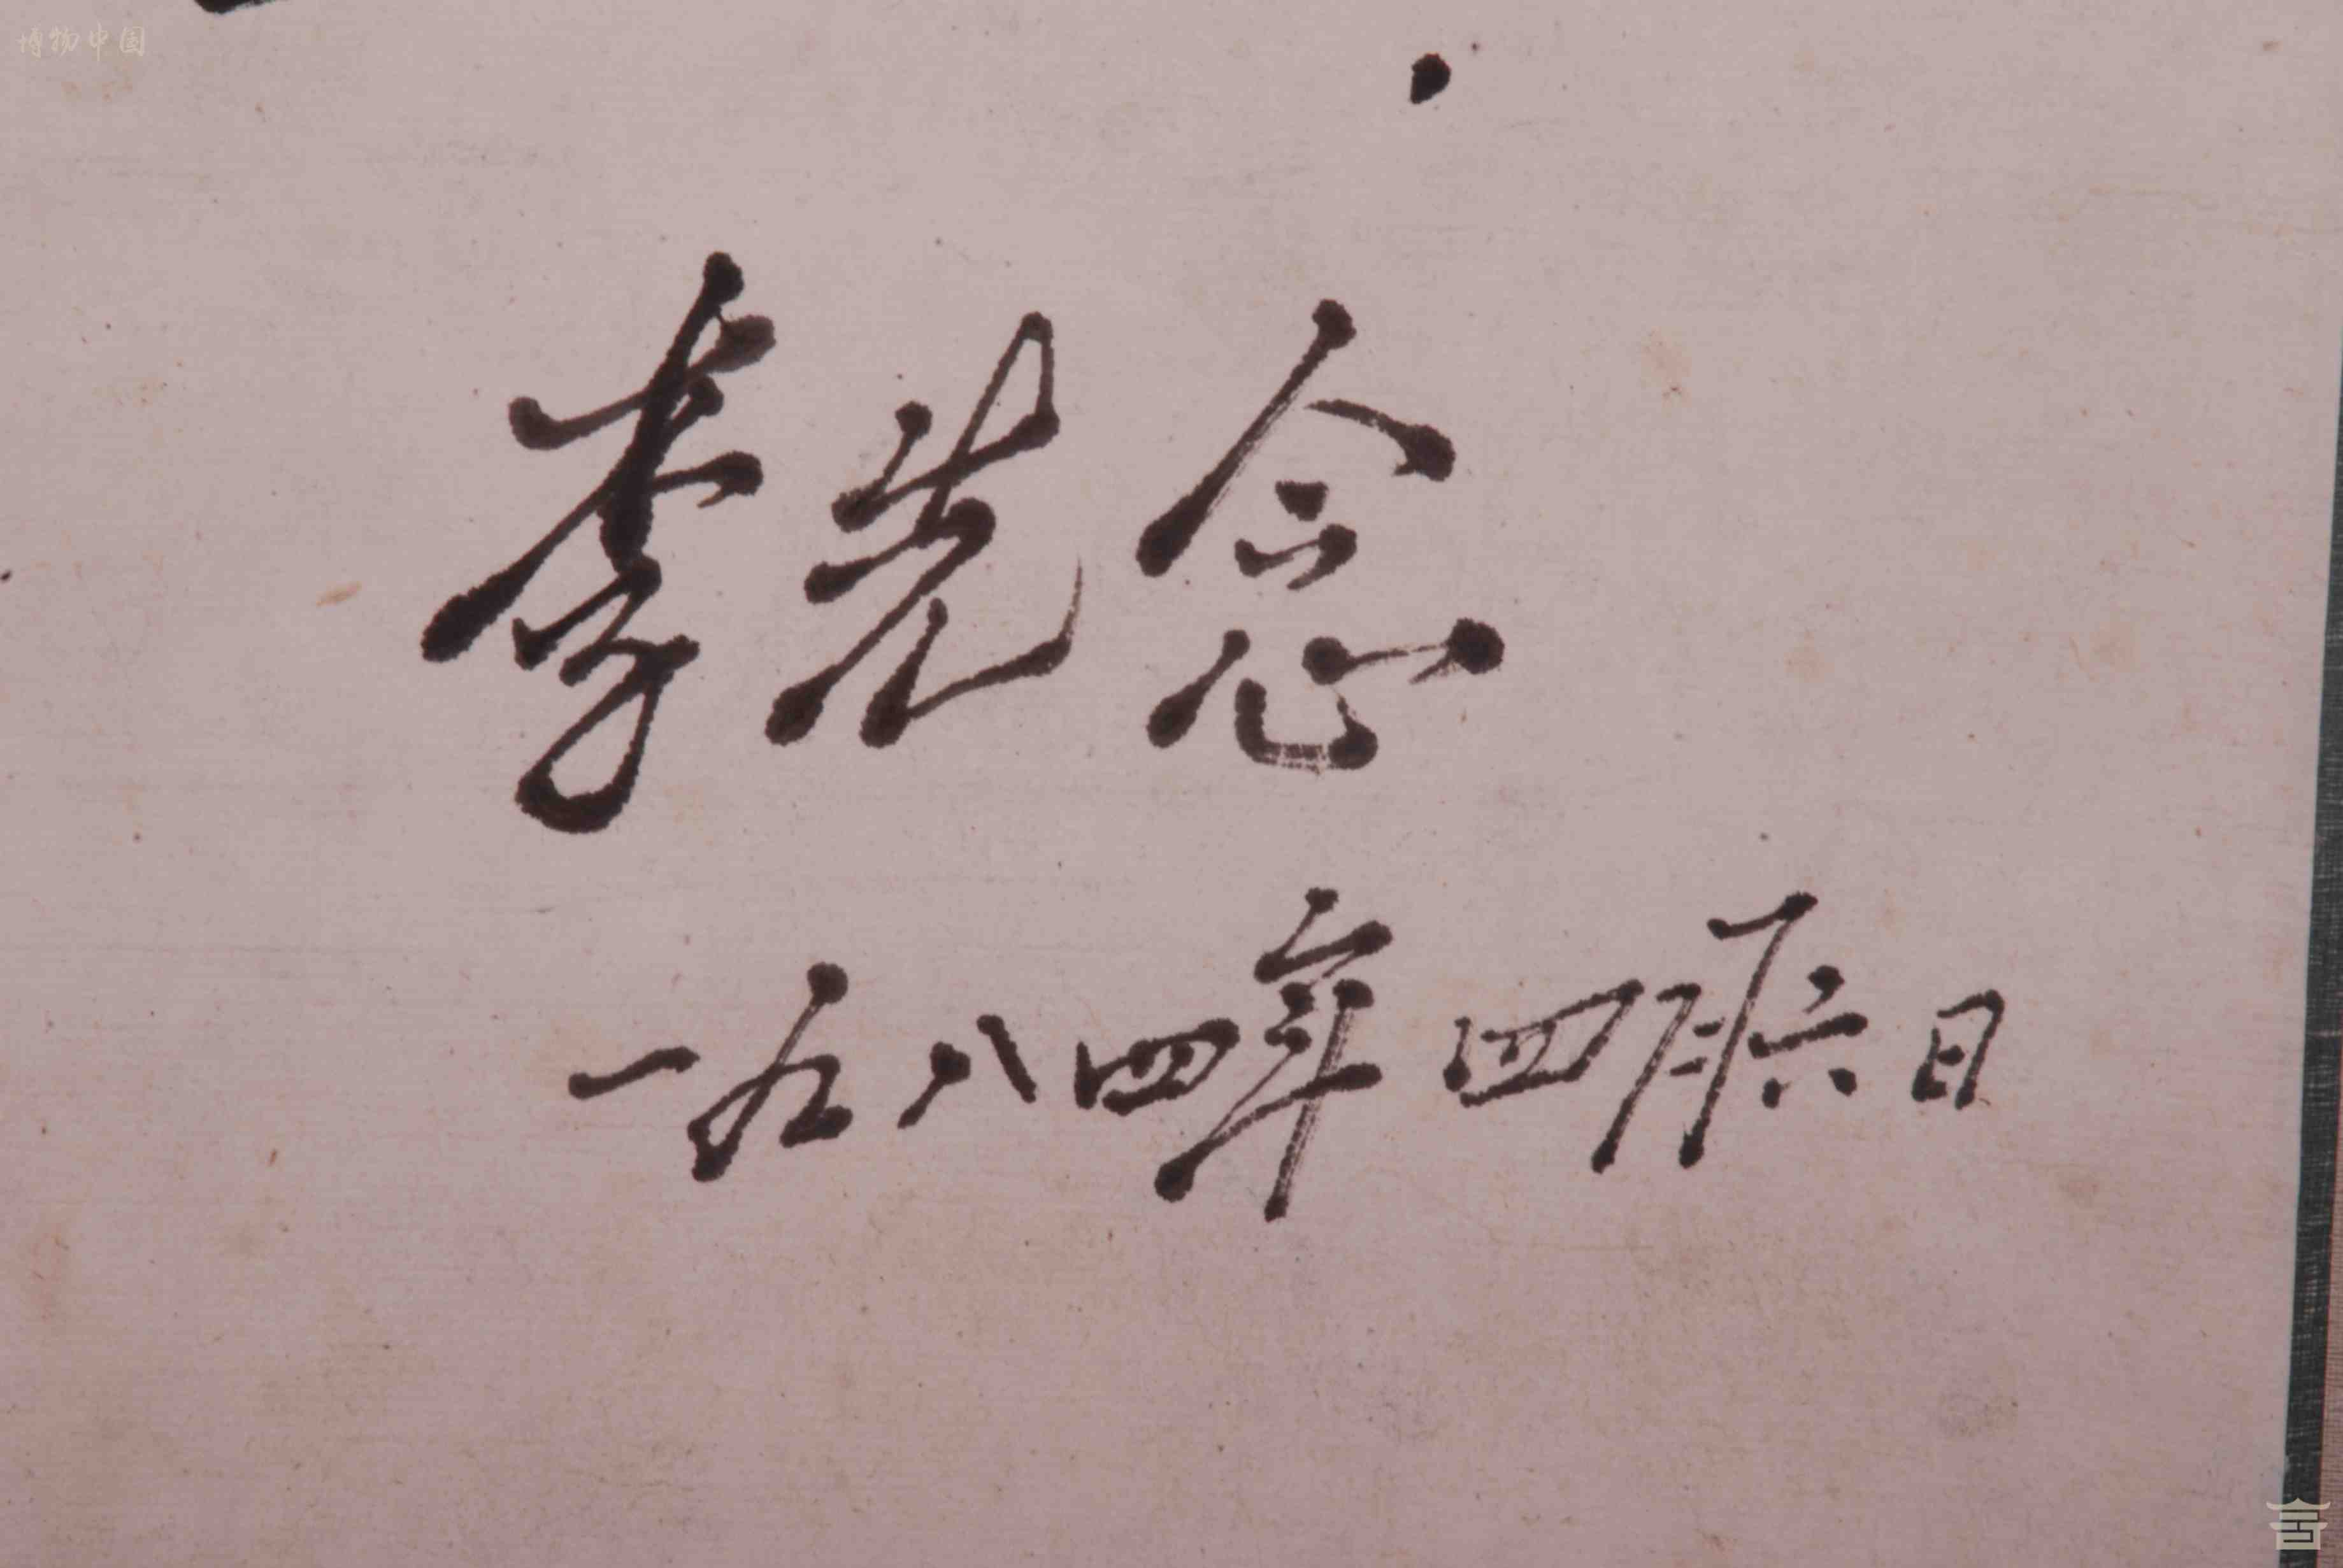 博物中国
李先念
一九八四年四月六日